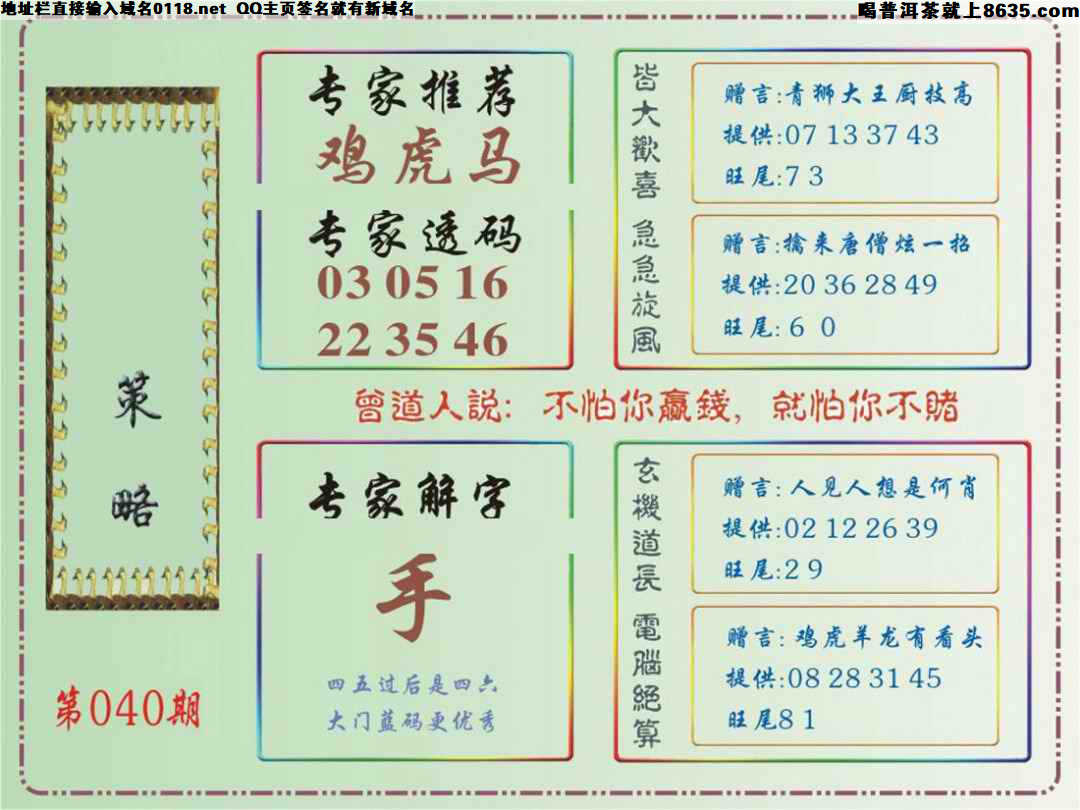 地址栏直接输入域名0118.net QQ主页签名就有新域名
喝普洱茶就上8635.com
策略
第040期
专家推荐
鸡虎马
专家透码
03 05 16
22 35 46
皆大歡喜
赠言:青狮大王厨技高
提供:07 13 37 43
旺尾:7 3
急急旋風
赠言:擒来唐僧炫一招
提供:20 36 28 49
旺尾:6 0
曾道人説: 不怕你贏錢, 就怕你不賭
专家解字
手
四五过后是四六
大门蓝码更优秀
玄機道長
赠言:人见人想是何肖
提供:02 12 26 39
旺尾:2 9
電腦絕算
赠言:鸡虎羊龙有看头
提供:08 28 31 45
旺尾8 1